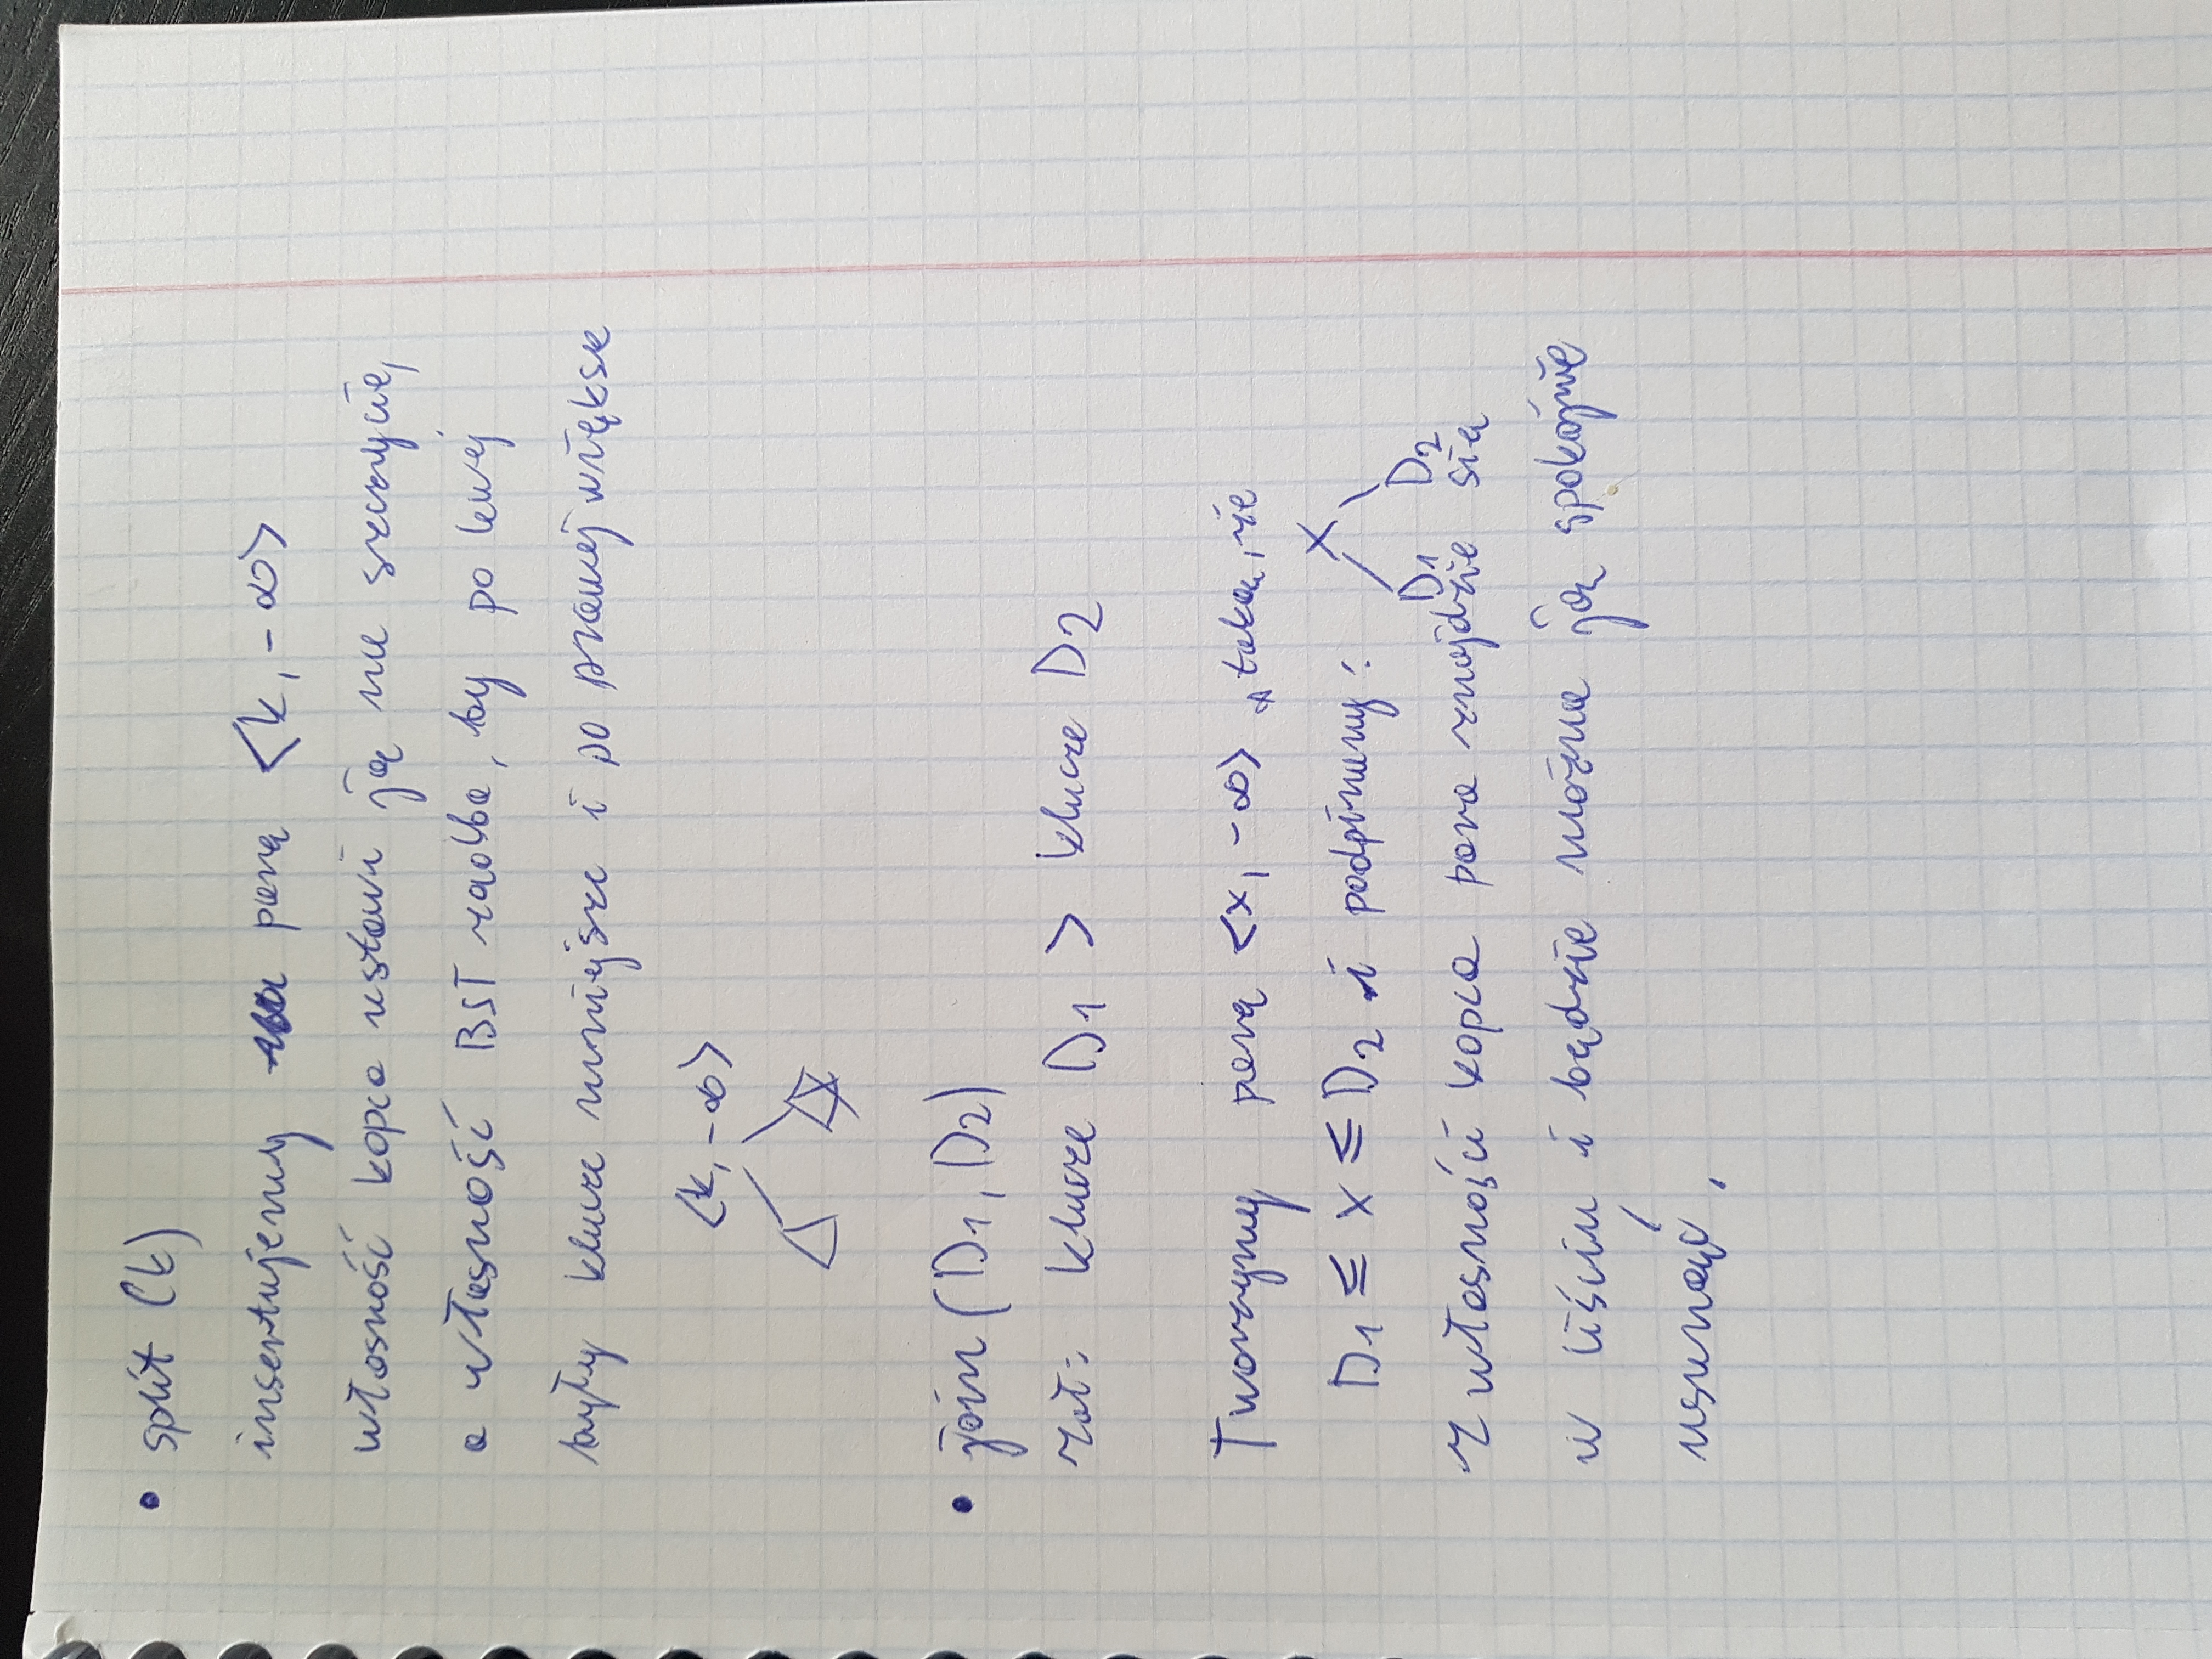 • split (k)
insertujemy parę <k, -∞>
własność kopca ustawi ją na szczycie,
a własność BST zadba, by po lewej
były klucze mniejsze i po prawej większe
<k, -∞>
• join (D1, D2)
zał: klucze D1 > klucze D2
Tworzymy parę <x, -∞> taką, że
D1 ≤ x ≤ D2 i podpinamy:
x
D1 D2
z własności kopca para znajdzie się
w liściu i będzie można ją spokojnie
usunąć,